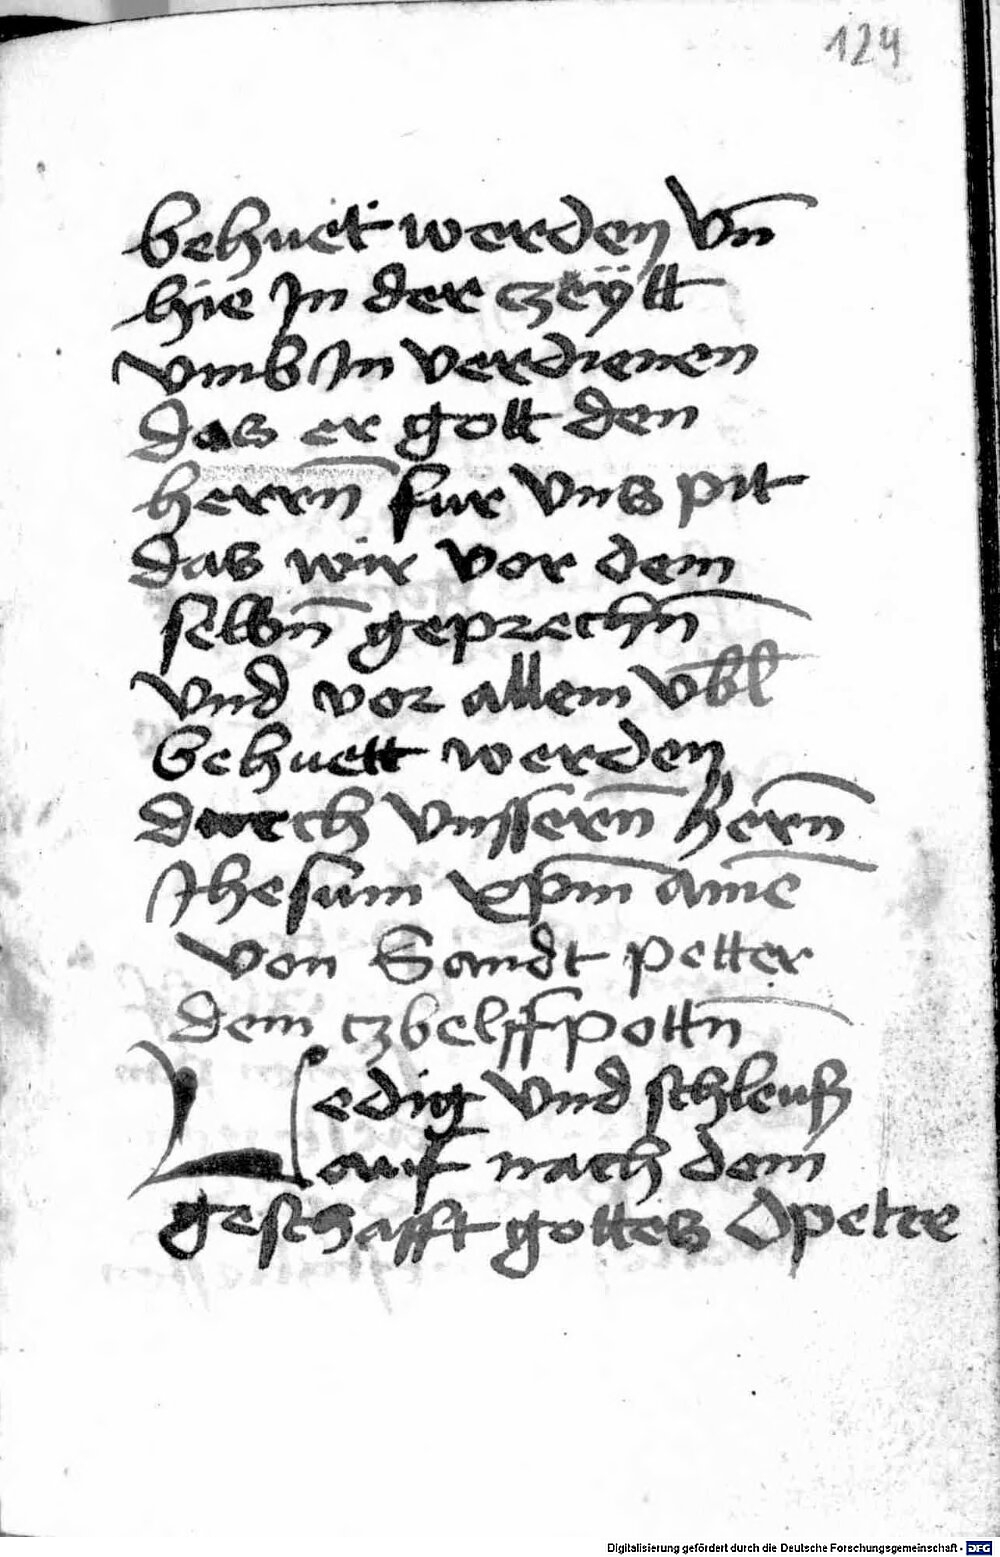 124
behuet werden vn̄
hie Jn der czeÿtt
vmb Jn verdienen
das er gott den
herrn̄ fur vns pit
das wir vor dem
selbn̄ geprechn̄
vnd vor allem vbl
behuett werden
durch vnssern̄ hern̄
Jhesum xp̄m amē
von Sandt petter
dem czbelffpottn̄
Ledig vnd schleuß
auf nach dem
geschafft gottes O peter
Digitalisierung gefördert durch die Deutsche Forschungsgemeinschaft - DFG